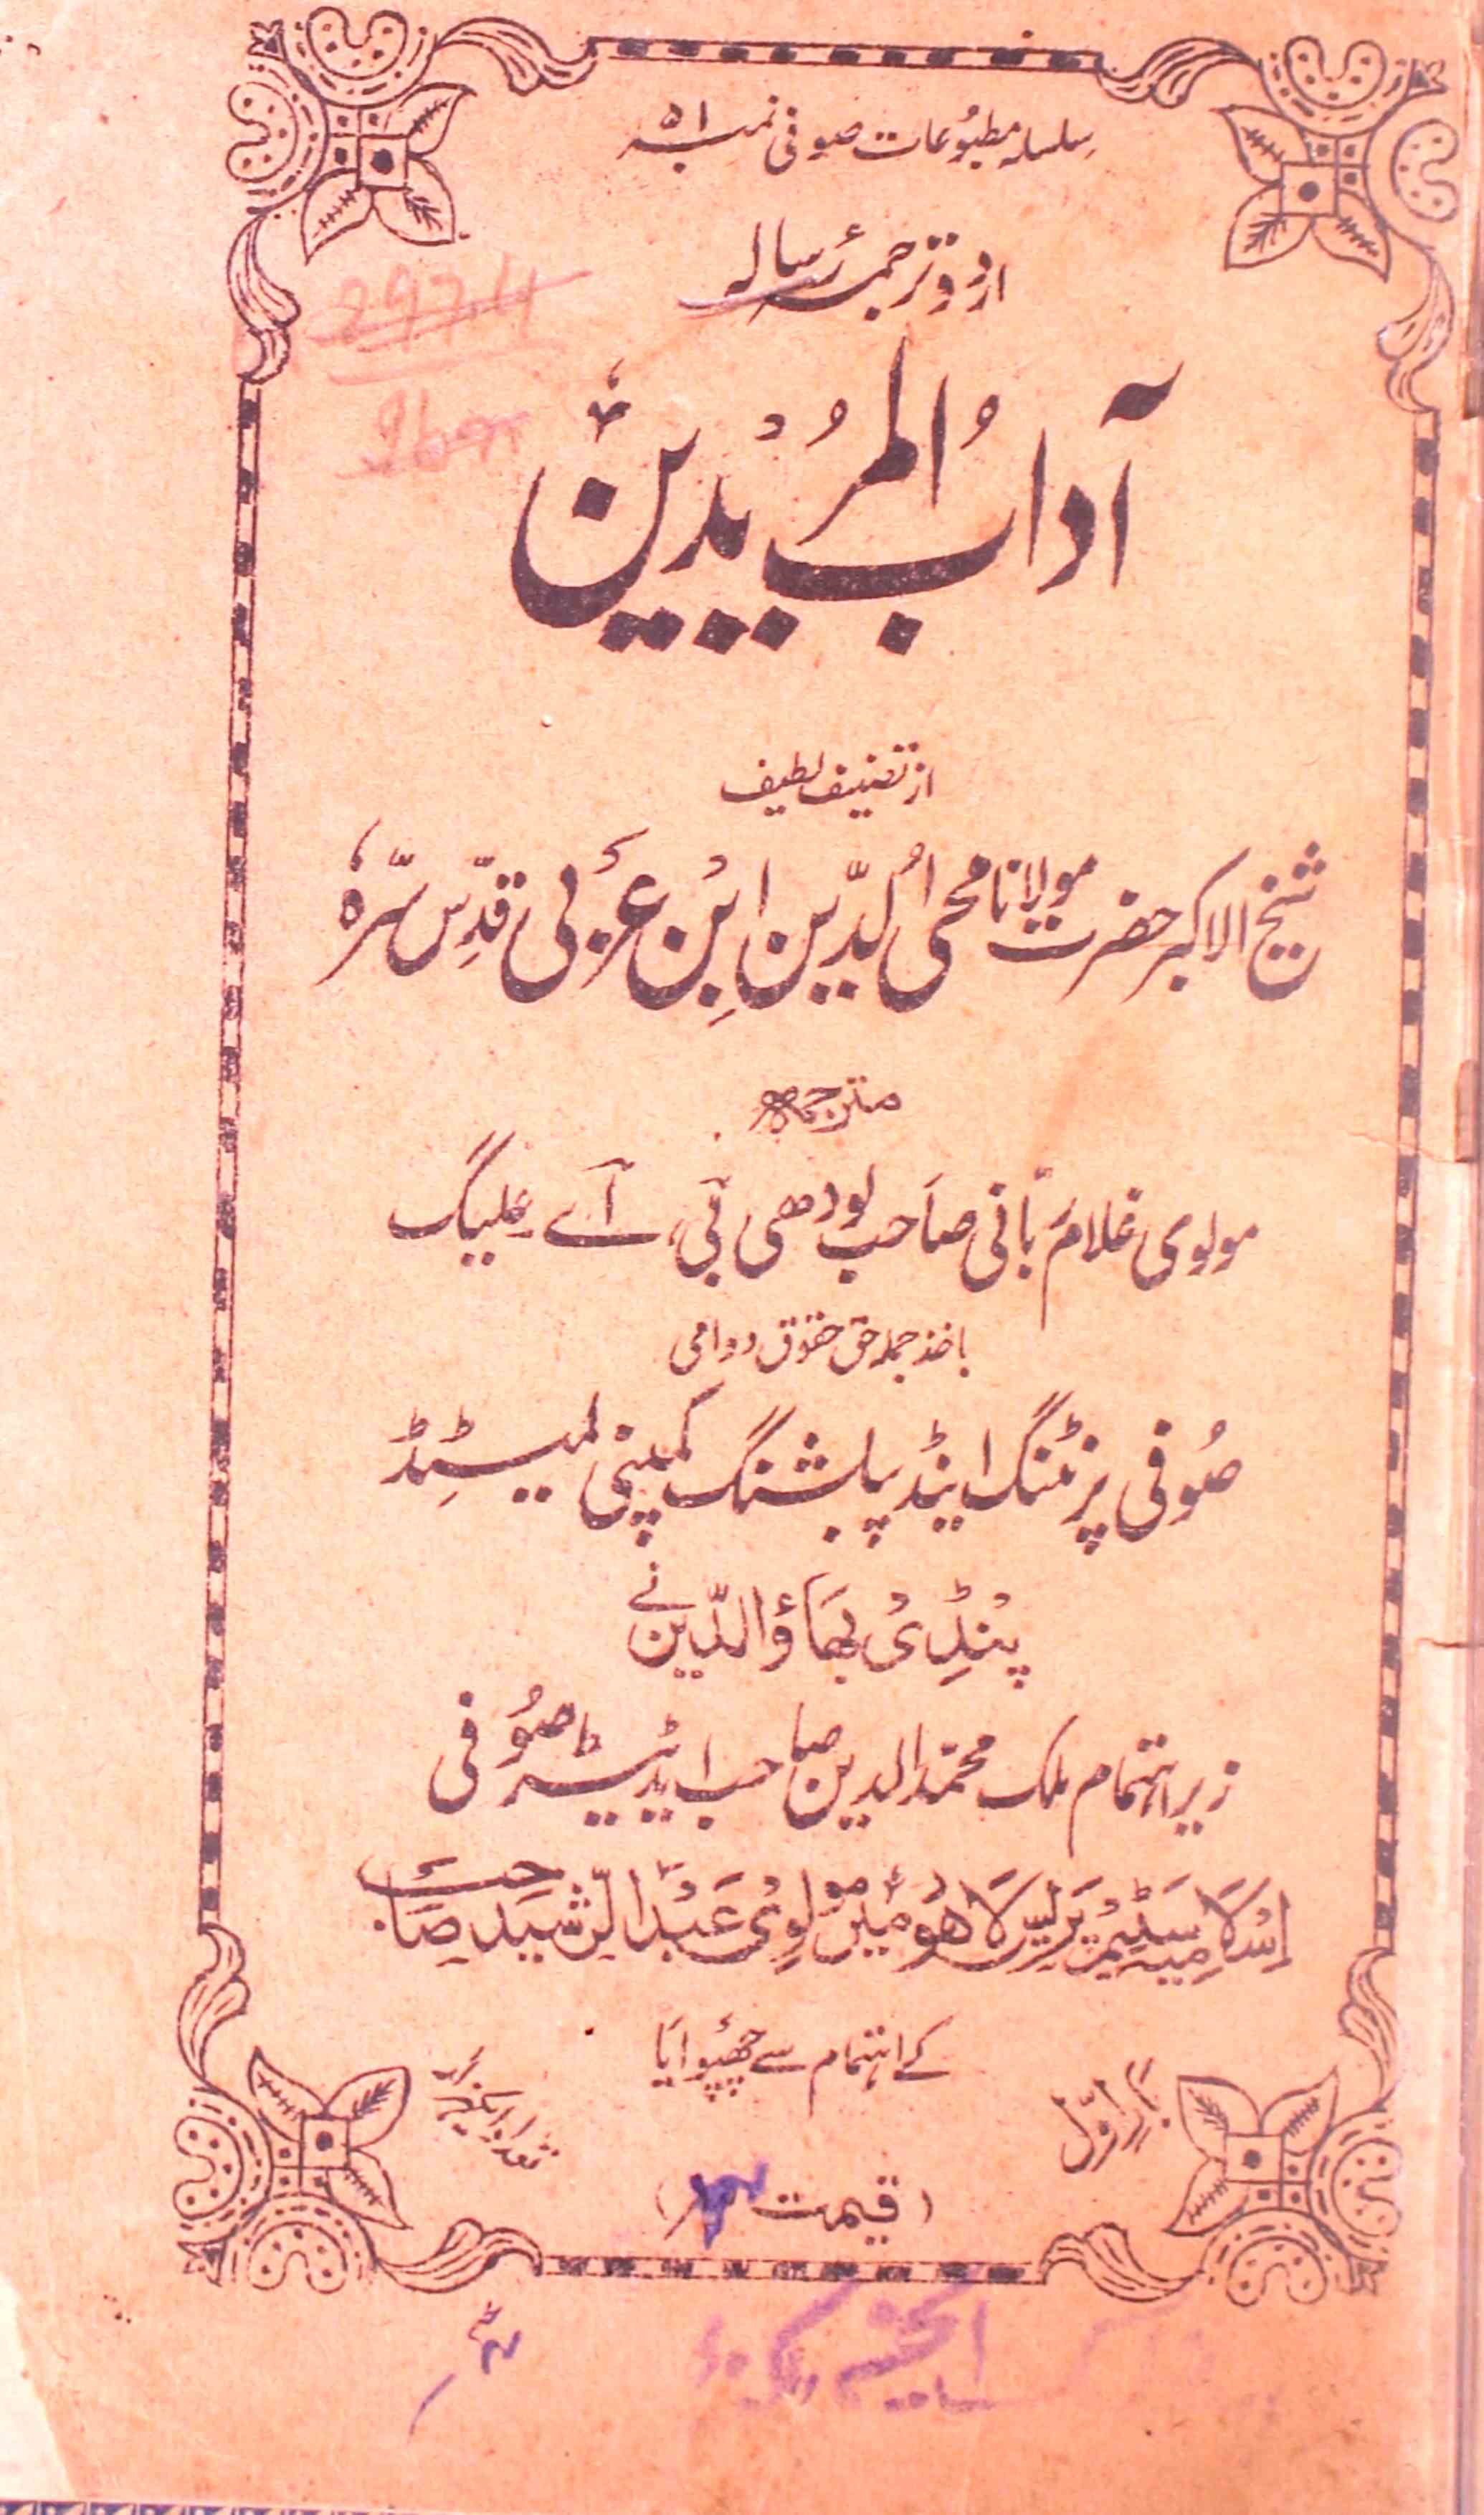 سلسلہ مطبوعات صوفی نمبر ۵۱
اردو ترجمۂ رسالہ
آدابُ المرُیدین
از تصنیف لطیف
شیخ الاکبر حضرت مولانا محی الدّین ابن عربی قدّس سرّہٗ
مترجمہ
مولوی غلام ربّانی صاحب لودھی بی، اے علیگ
باخذ جملہ حق حقوق دوامی
صُوفی پرنٹنگ اینڈ پبلشنگ کمپنی لمیٹِڈ
پنڈی بہاؤالدّین نے
زیر اہتمام ملک محمّد الدین صاحب ایڈیٹر صُوفی
اِسلامیہ سٹیم پریس لاہور میں مولوی عبدالرّشید صاحب
کے اہتمام سے چھپوایا
بار اوّل
تعداد ایکہزار
(قیمت
297.4